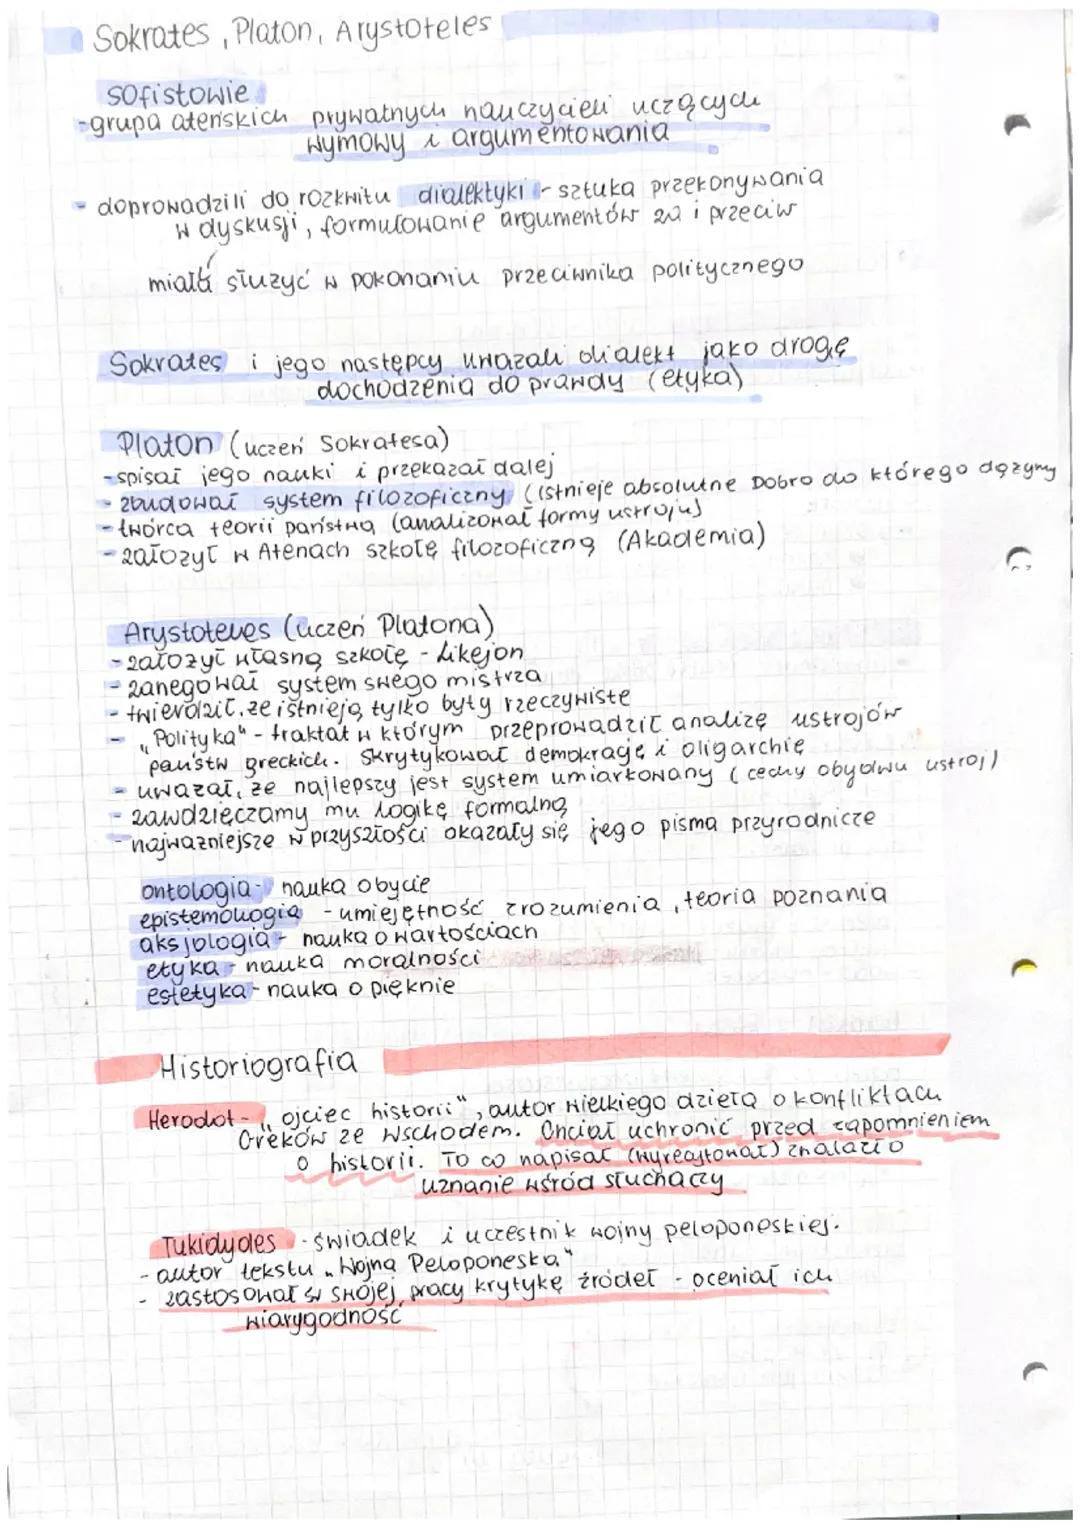 Sokrates, Platon, Arystoteles
sofistowie
-grupa ateńskich prywatnych nauczycieli uczących
wymowy i argumentowania
- doprowadzili do rozkwitu dialektyki - sztuka przekonywania
w dyskusji, formułowanie argumentów za i przeciw
miała służyć w pokonaniu przeciwnika politycznego
Sokrates i jego następcy uważali dialekt jako drogę
dochodzenia do prawdy (etyka)
Platon (uczeń Sokratesa)
-spisał jego nauki i przekazał dalej
- zbudował system filozoficzny (istnieje absolutne Dobro do którego dążymy
-twórca teorii państwa (analizował formy ustroju)
-założył w Atenach szkołę filozoficzną (Akademia)
Arystoteles (uczeń Platona)
-założył własną szkołę - Likejon
-zanegował system swego mistrza
- twierdził, że istnieją tylko byty rzeczywiste
- „Polityka" - traktat w którym przeprowadził analizę ustrojów
państw greckich. Skrytykował demokrację i oligarchię
- uważał, że najlepszy jest system umiarkowany (cechy obydwu ustroj)
- zawdzięczamy mu logikę formalną
-najważniejsze w przyszłości okazały się jego pisma przyrodnicze
ontologia- nauka o bycie
epistemologia - umiejętność zrozumienia, teoria poznania
aksjologia - nauka o wartościach
etyka - nauka moralności
estetyka - nauka o pięknie
Historiografia
Herodot - „ojciec historii", autor wielkiego dzieła o konfliktach
Greków ze wschodem. Chciał uchronić przed zapomnieniem
o historii. To co napisał (wyrecytował) znalazło
uznanie wśród słuchaczy
Tukidydes - świadek i uczestnik wojny peloponeskiej.
- autor tekstu „Wojna Peloponeska"
- zastosował w swojej pracy krytykę źródeł - oceniał ich
wiarygodność